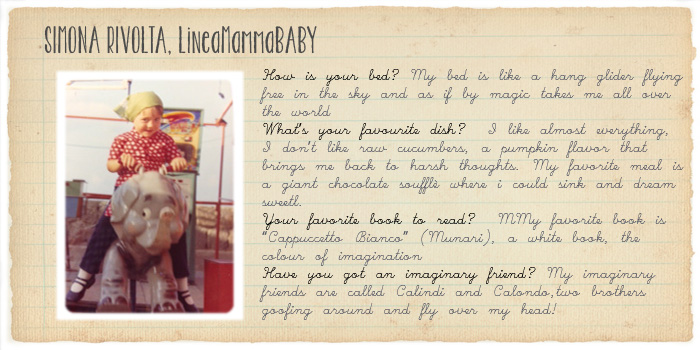 SIMONA RIVOLTA, LineaMammaBABY
How is your bed? My bed is like a hang glider flying
free in the sky and as if by magic takes me all over
the world
What's your favourite dish? I like almost everything,
I don't like raw cucumbers, a pumpkin flavor that
brings me back to harsh thoughts. My favorite meal is
a giant chocolate soufflè where i could sink and dream
sweetl.
Your favorite book to read? MMy favorite book is
"Cappuccetto Bianco" (Munari), a white book, the
colour of imagination
Have you got an imaginary friend? My imaginary
friends are called Calindi and Calondo,two brothers
goofing around and fly over my head!